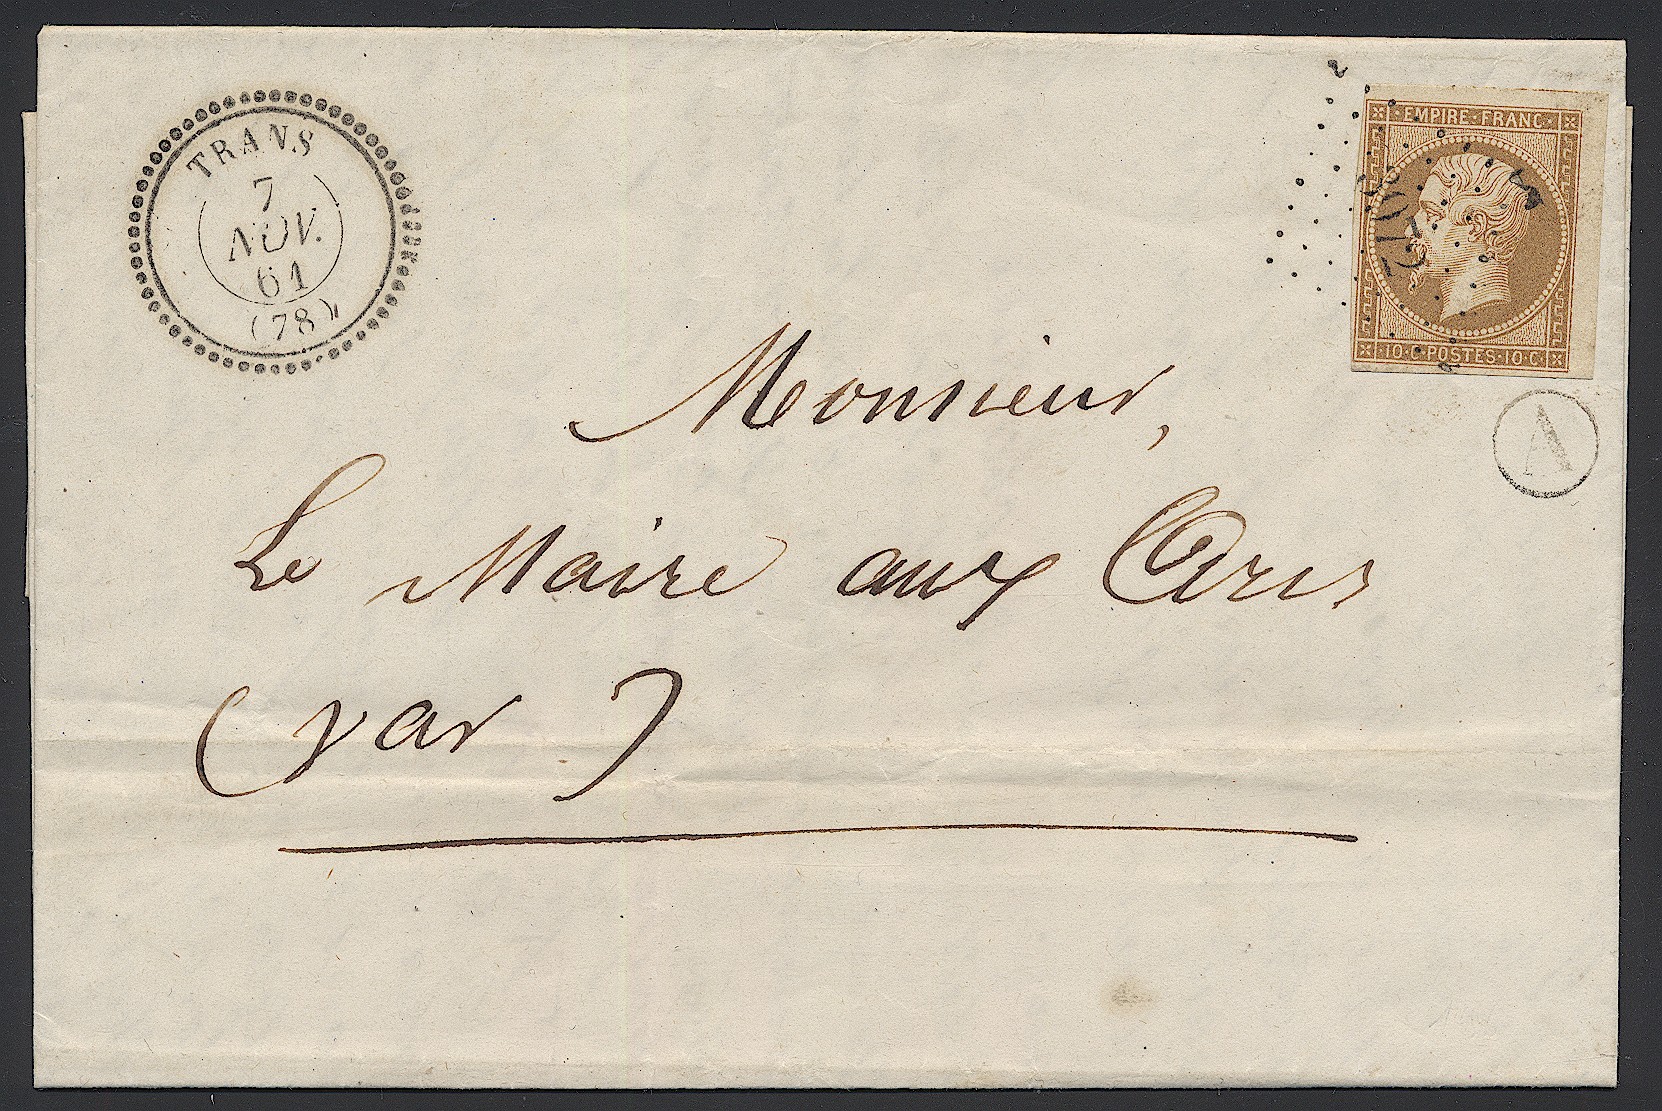 TRANS
7
NOV.
61
(78)
EMPIRE·FRANC·
10·C·POSTES·10·C·
A
Monsieur,
Le Maire aux Arcs
(Var)